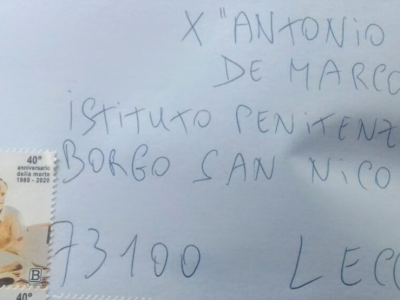 X "ANTONIO
DE MARCO
ISTITUTO PENITENZ
BORGO SAN NICO
73100 LECC
40°
anniversario
della morte
1980 - 2020
B
40°